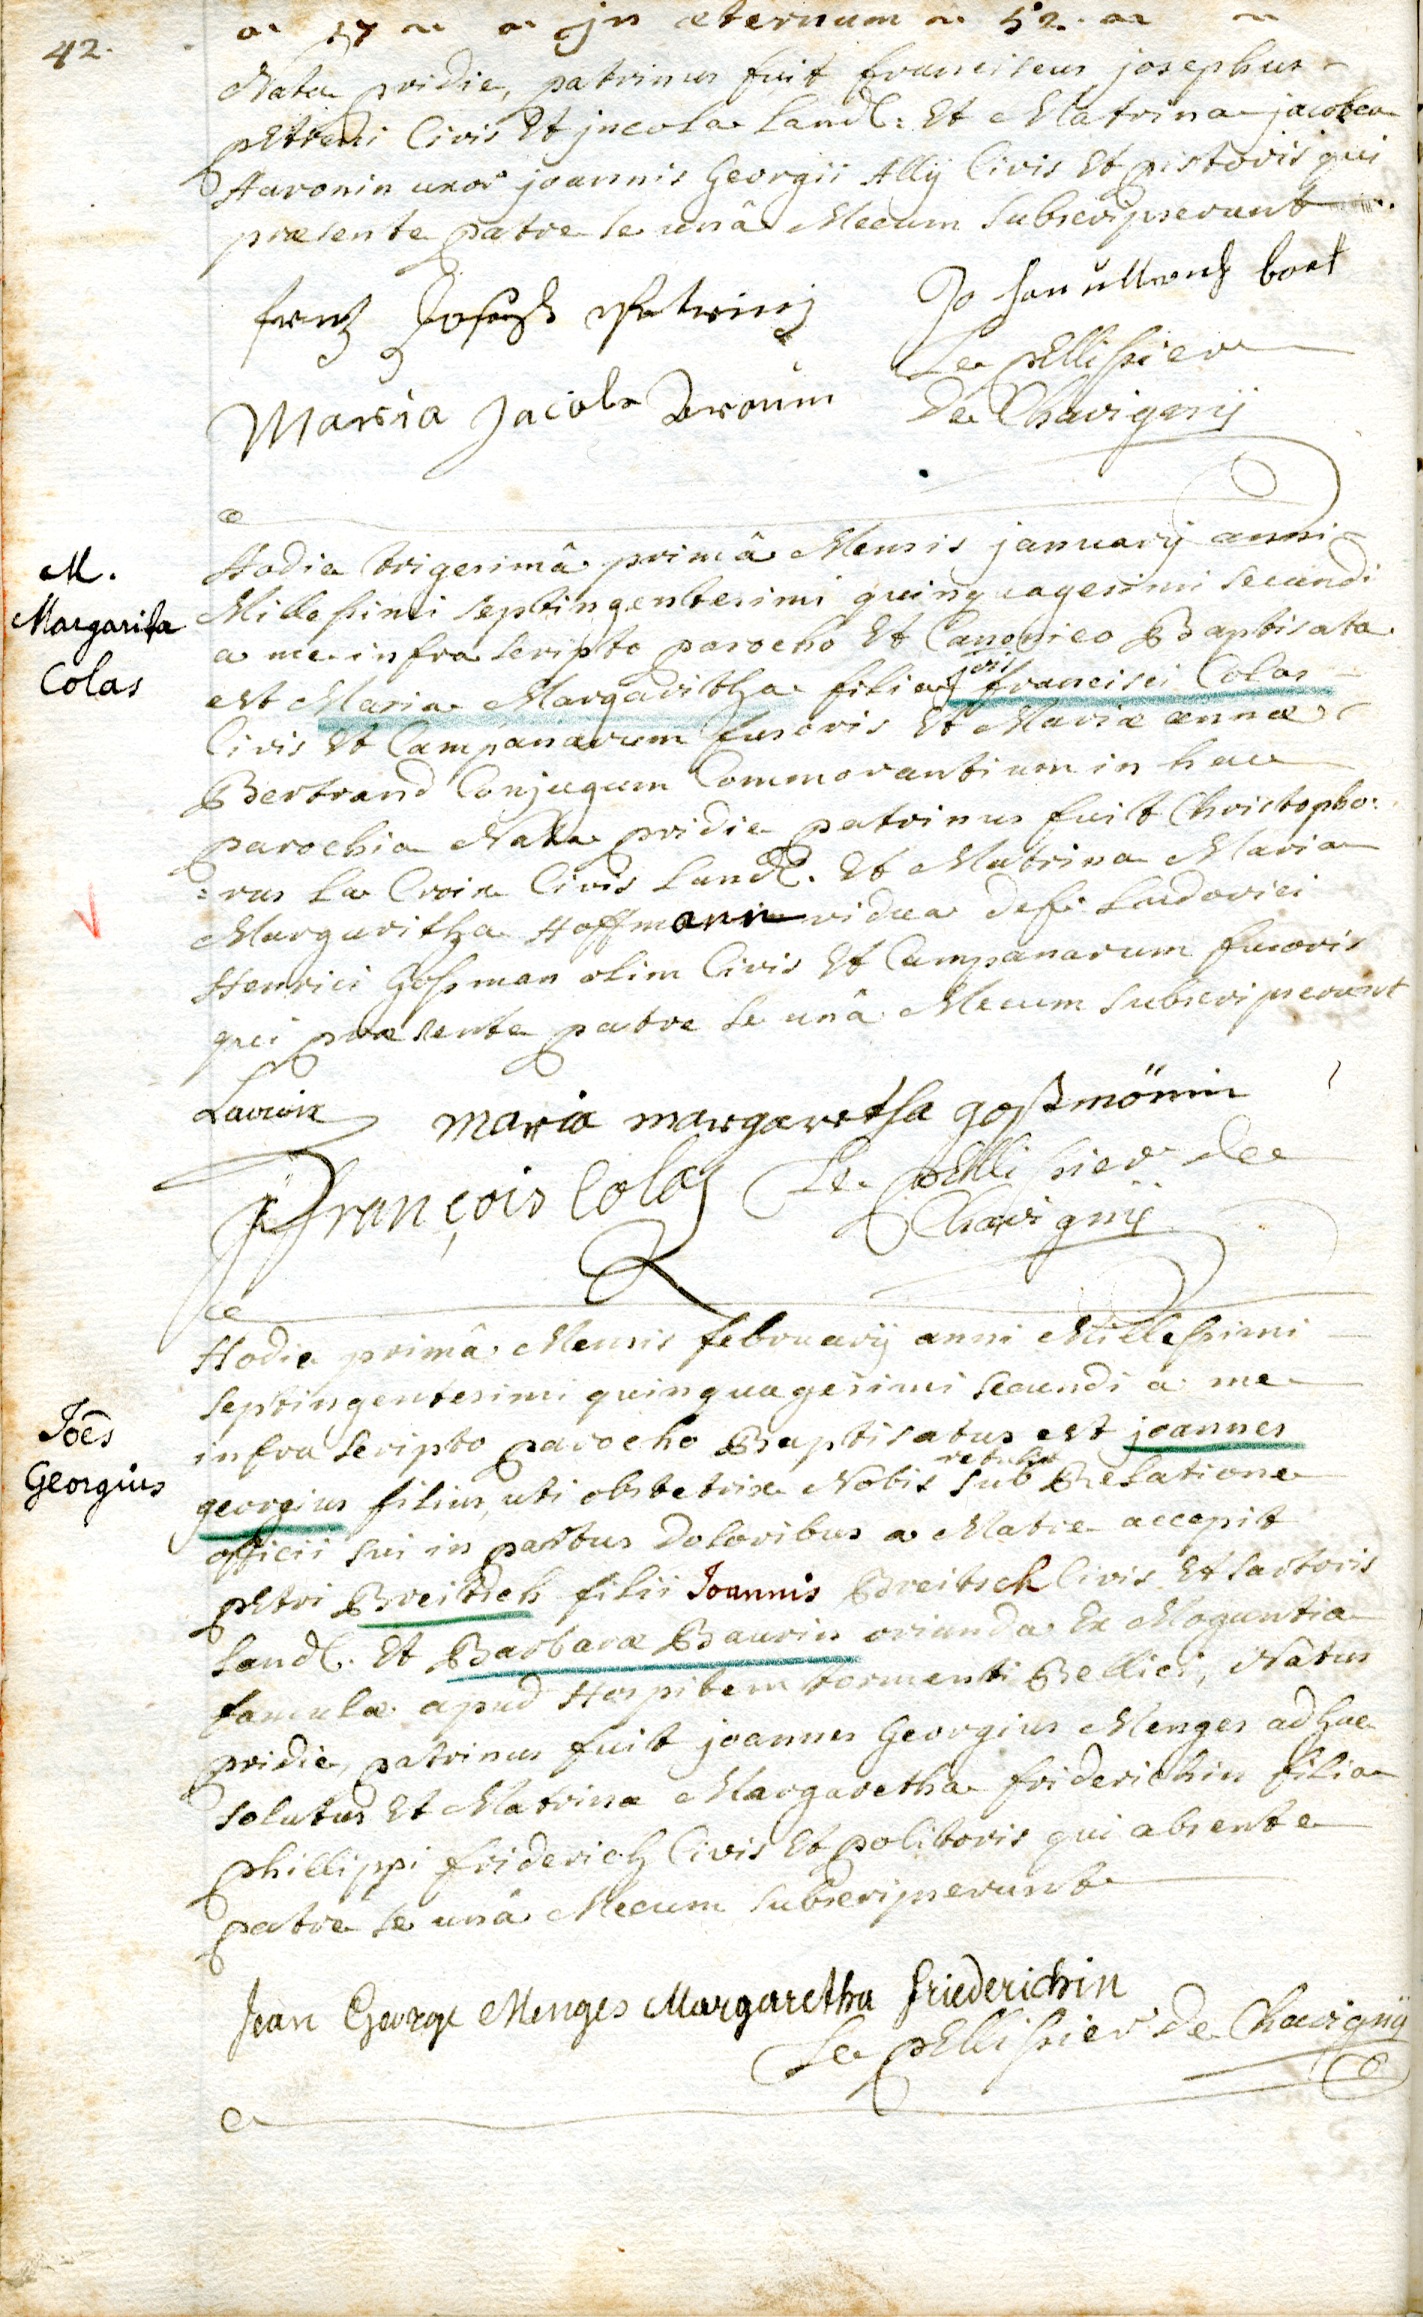 42.
17 in æternum 52.
Nata pridie, patrinus fuit franciscus josephus
pEtreni Civis Et jncola Land: Et Matrina jacobea
Haronin uxor joannis Georgii Ally Civis Et pistoris qui
præsente patre se unâ Mecum subscripserunt
frantz Joseph
Maria Jacobe
Le pEllissier
De Chavignij
M.
Margarita
Colas
Hodie trigesimâ primâ Mensis januarij anni
Millesimi septingentesimi quinquagesimi secundi
a me infra scripto parocho Et Canonico Baptisata
est Maria Margaritha filia francisci Colas
Civis Et Campanarum fusoris Et Mariæ annæ
Bertrand Conjugum Commorantium in hac
parochia Nata pridie patrinus fuit Christopho:
:rus La Croix Civis Land. Et Matrina Maria
Margaritha Hoffmann vidua def: Ludovici
Henrici Gosman olim Civis Et Campanarum fusoris
qui præsente patre se unâ Mecum subscripserunt
Lacroix maria margaretha goßmönin
françois Colas Le pEllissier de
Chavignij
Joês
Georgius
Hodie primâ Mensis februarij anni Millesimi
septingentesimi quinquagesimi secundi a me
infra scripto parocho Baptisatus est joannes
georgius filius, uti obstetrix Nobis retulit sub Relatione
officii sui in partus Doloribus a Matre accepit
pEtri Breitsch filii Joannis Breitsch Civis Et sartoris
Land. Et Barbaræ Baurin oriunda Ex Moguntia
famulæ apud Hospitem tormenti Bellici, Natus
pridie, patrinus fuit joannes Georgius Menges adhuc
solutus Et Matrina Margaretha friderichin filia
phillippi friderich Civis Et politoris qui absente
patre se unâ Mecum subscripserunt
Jean George Menges Margaretha friederichin
Le pEllissier De Chavignij